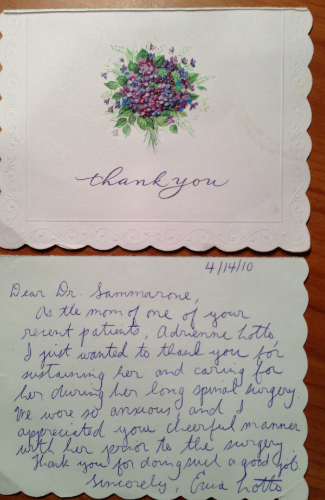 thank you
4/14/10
Dear Dr. Sammarone,
As the mom of one of your
recent patients, Adrienne Lotto,
I just wanted to thank you for
sustaining her and caring for
her during her long spinal surgery.
We were so anxious and I
appreciated your cheerful manner
with her prior to the surgery.
Thank you for doing such a good job.
Sincerely, Erica Lotto